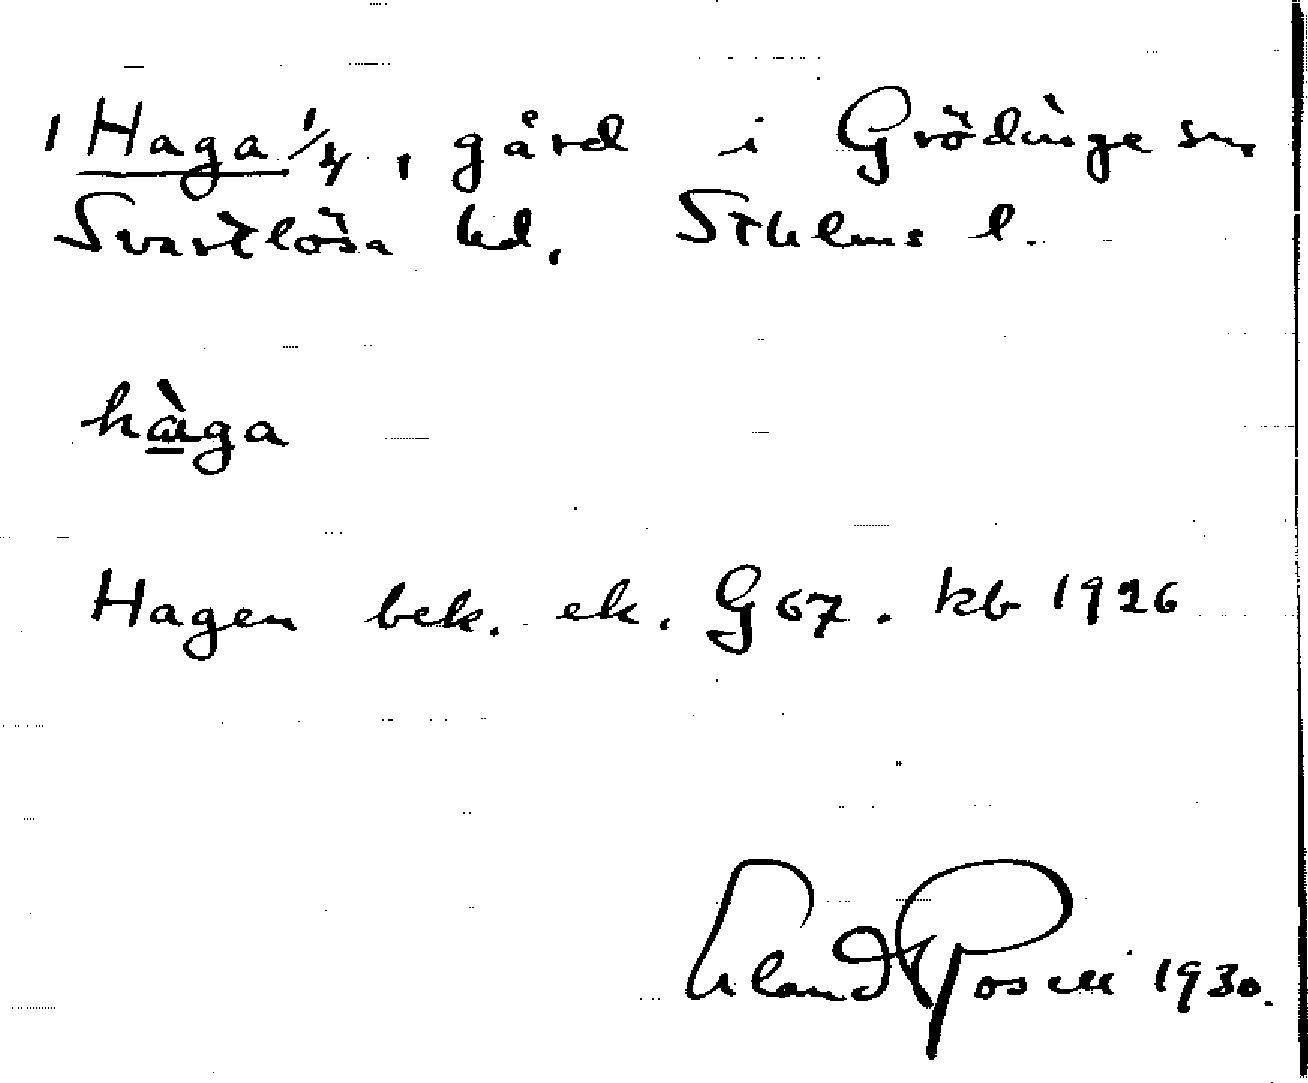 1 Haga 1/4, gård i Grödinge sn,
Svartlösa hd, Sthlms l.
hàga
Hagen bek. ek. G 67. kb 1926
Erland Rosell 1930.